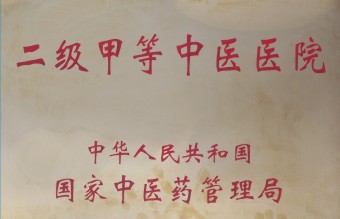 二级甲等中医医院
中华人民共和国
国家中医药管理局